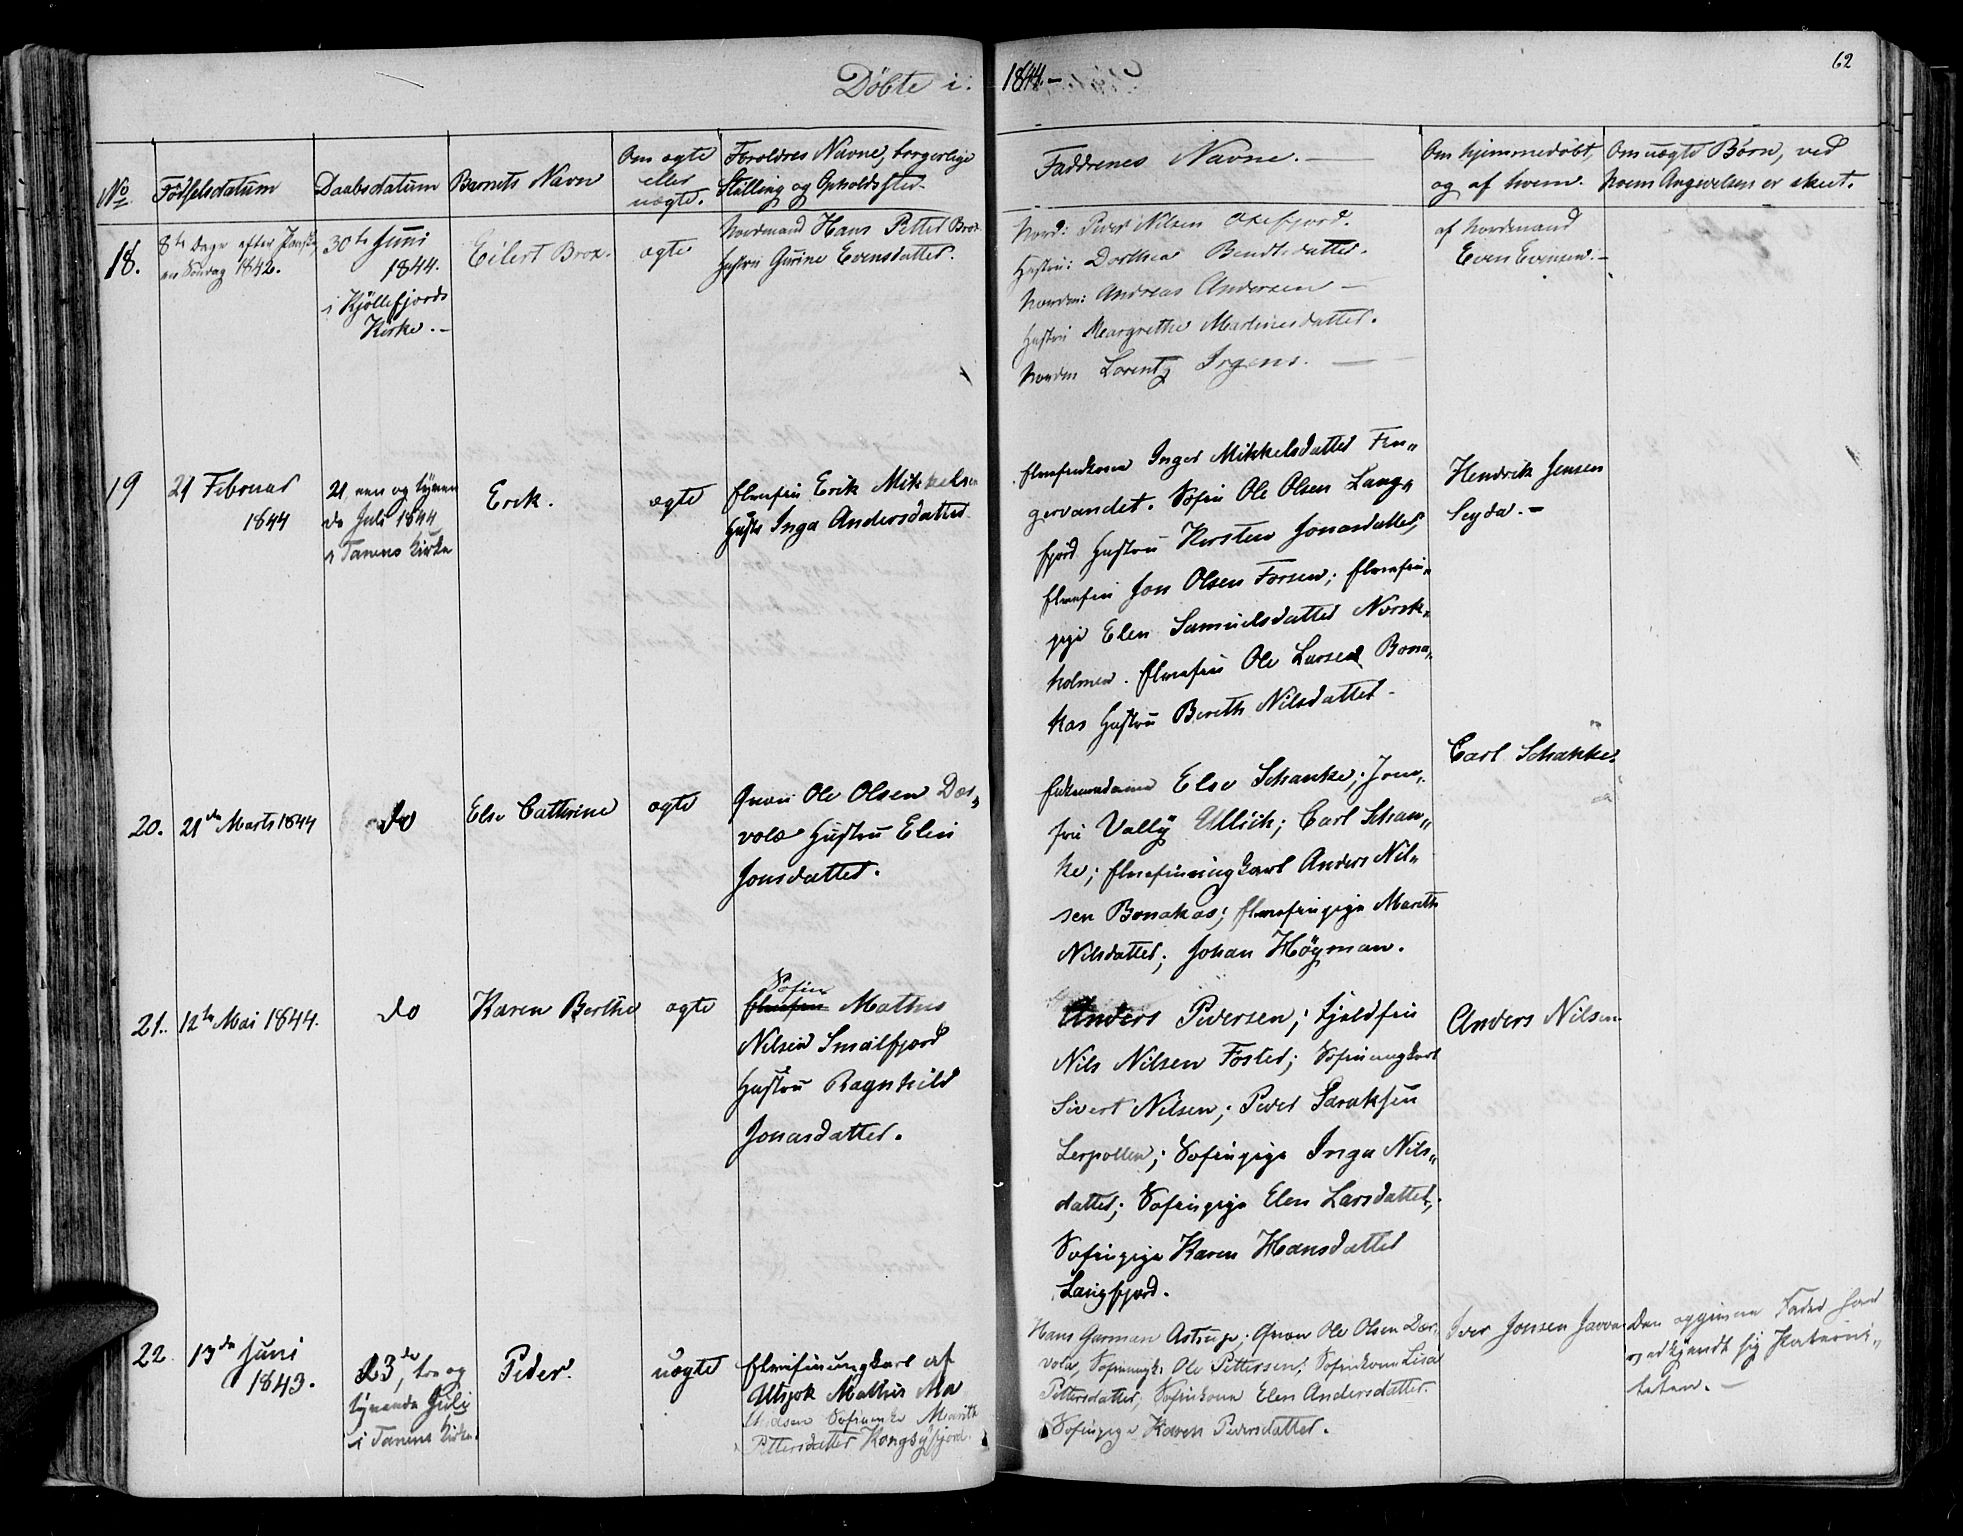 Döbte i.
1844.—
62
No
Födselsdatum
Daabsdatum
Barnets Navn
Om ægte
eller
uægte.
Foreldres Navne, borgerlige
Stilling og Opholdssted.
Faddrenes Navne.—
Om hjemmedöbt,
og af hvem.
Om uægte Börn, ved
hvem Angivelsen er skeet.
18.
8de Dage efter
en Söndag 1842.
30te Juni
1844.
i Kjöllefjords
Kirke.—
Eilert Brox.
ægte
Nordmand Hans Petter Brox
Hustru Gurine Evensdatter.
Nord: Peder Nilsen Oxefjord.
Hustru: Dorthea Bendtsdatter.
Nordm: Andreas Andersen —
Hustru Margrethe Martinesdatter.
Nordm Lorentz Irgens. —
af Nordmand
Even Evensen.—
19
21 Februar
1844
21, een og tyven
de Juli 1844
i Tanens Kirke
Erik.
ægte
Elvefin Erik Mikkelsen
Hustr Inga Andersdatter
Elvefinkone Inger Mikkelsdatter Fin„
gervandet. Söfin Ole Olsen Lang„
fjord Hustru Kirsten Jonasdatter;
Elvefin Jon Olsen Forsen; Elvefin„
pige Elen Samuelsdatter Norsk„
holmen. Elvefin Ole Larsen Bona„
kas Hustru Bereth Nilsdatter.
Hendrik Jensen
Seyda.—
20.
21de Marts 1844
do
Else Cathrine
ægte
Qvæn Ole Olsen Dær„
vola Hustru Elen
Jonsdatter.
Else Schanke; Jom„
fru Vally Ullich; Carl Schan„
ke; Elvefinungkarl Anders Nil„
sen Bonakas; Elvefinpige Mareth
Nilsdatter; Johan Högman.
Carl Schanke.
21.
12te Mai 1844.
do
Karen Berthe
ægte
Söfin
Elvefin Mathis
Nilsen Smalfjord
Hustru Ragnhild
Jonasdatter.
Anders Pedersen; Fjeldfin
Nils Nilsen Foster; Söfinungkarl
Sivert Nilsen; Peder Saraksen
Lerpollen; Söfinpige Inga Nils„
datter; Söfinpige Elen Larsdatter;
Söfinpige Karen Hansdatter
Langfjord.
Anders Nilsen
22
13de Juni
1843.
23de, tre og
tyvende Juli
i Tanens Kirke.
Peder.
uægte
Elvefinungkarl af
Utsjok Mathis Ma
thisen Söfinenke Marith
Pettersdatter Kongsöfjord.
Hans Garman Astrup; Qvæn Ole Olsen Dær„
vola, Söfinungk: Ole Pettersen; Söfinkone Lisa
Pettersdatter, Söfinkone Elen Andersdatter.
Söfinpige Karen Pedersdatter.
Iver Jonsen Javva
Den opgivne Fader har
vedkjendt sig Paterni„
teten.—